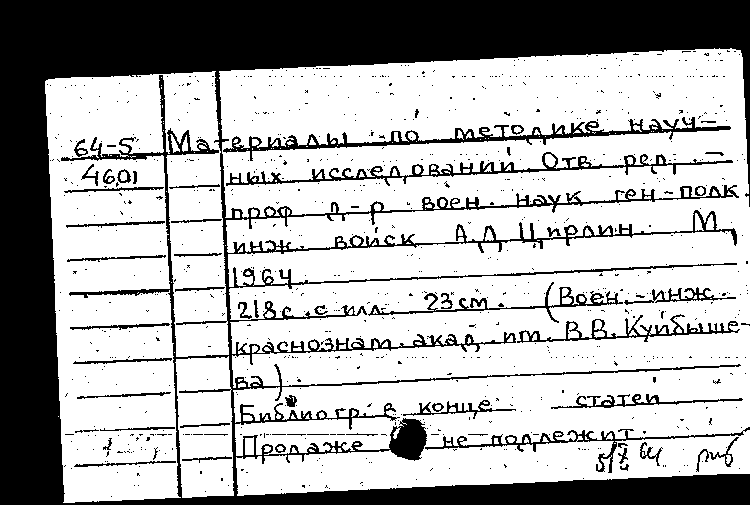 64-5 Материалы по методике науч-
4601 ных исследований. Отв. ред. -
проф д-р воен. наук ген-полк.
инж. войск А.Д. Цирлин. М,
1964.
218с. с илл. 23см. (Воен.-инж.
краснознам. акад. им. В.В. Куйбыше-
ва).
Библиогр. в конце статей
Продаже не подлежит.
64